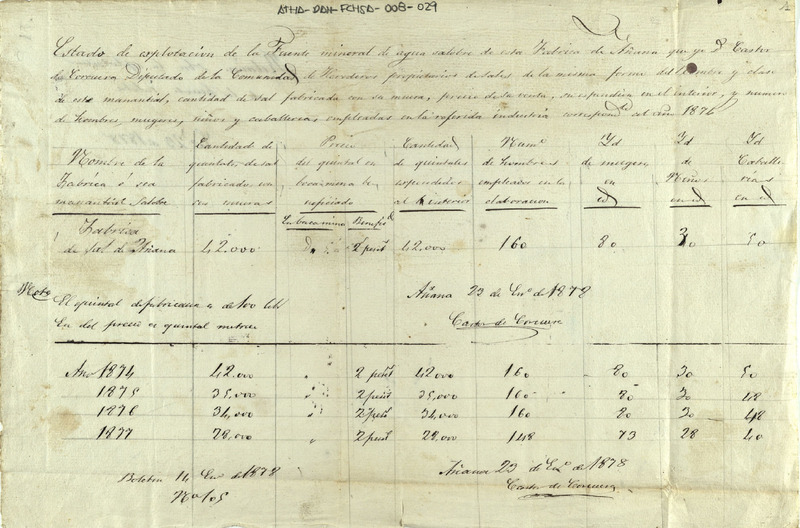 ATHA-DAH-FCHSA-008-029
Estado de esplotacion de la Fuente mineral de agua salobre de esta Fabrica de Añana que yo Dn Castor
de Corcuera Diputado de la Comunidad de Herederos propietarios de sales de la misma formo del nombre y clase
de este manantial, cantidad de sal fabricada con su muera, precio de la venta, su espendicion en el interior, y numero
de hombres, mugeres, niños y caballerias, empleadas en la referida industria correspondte al año 1876
Nombre de la Fábrica ó sea manantial Salobre
Cantidad de quintales de sal fabricada con sus mueras
Precio del quintal en bocamina beneficiado
Cantidad de quintales espendidos al interior
Numo de hombres empleados en la elaboracion
Id de mugeres en id
Id de Niños en id
Id Caballerias en id
En bocamina Benefido
Fabrica
de sal de Añana 42.000 2 peset 42.000 160 80 30 50
Nota
El quintal de fabricacion es de 100 lib
En del precio es quintal metrico
Añana 23 de Eno de 1878
Castor de Corcuera
Año 1874 42.000 " 2 peset 42.000 160 80 30 50
1875 35,000 " 2 peset 35,000 160 80 30 48
1876 34,000 " 2 peset 34,000 160 80 30 48
1877 28,000 " 2 peset 28,000 148 73 28 40
Boletin 14 Eno de 1878
No 105
Añana 23 de Eno de 1878
Castor de Corcuera